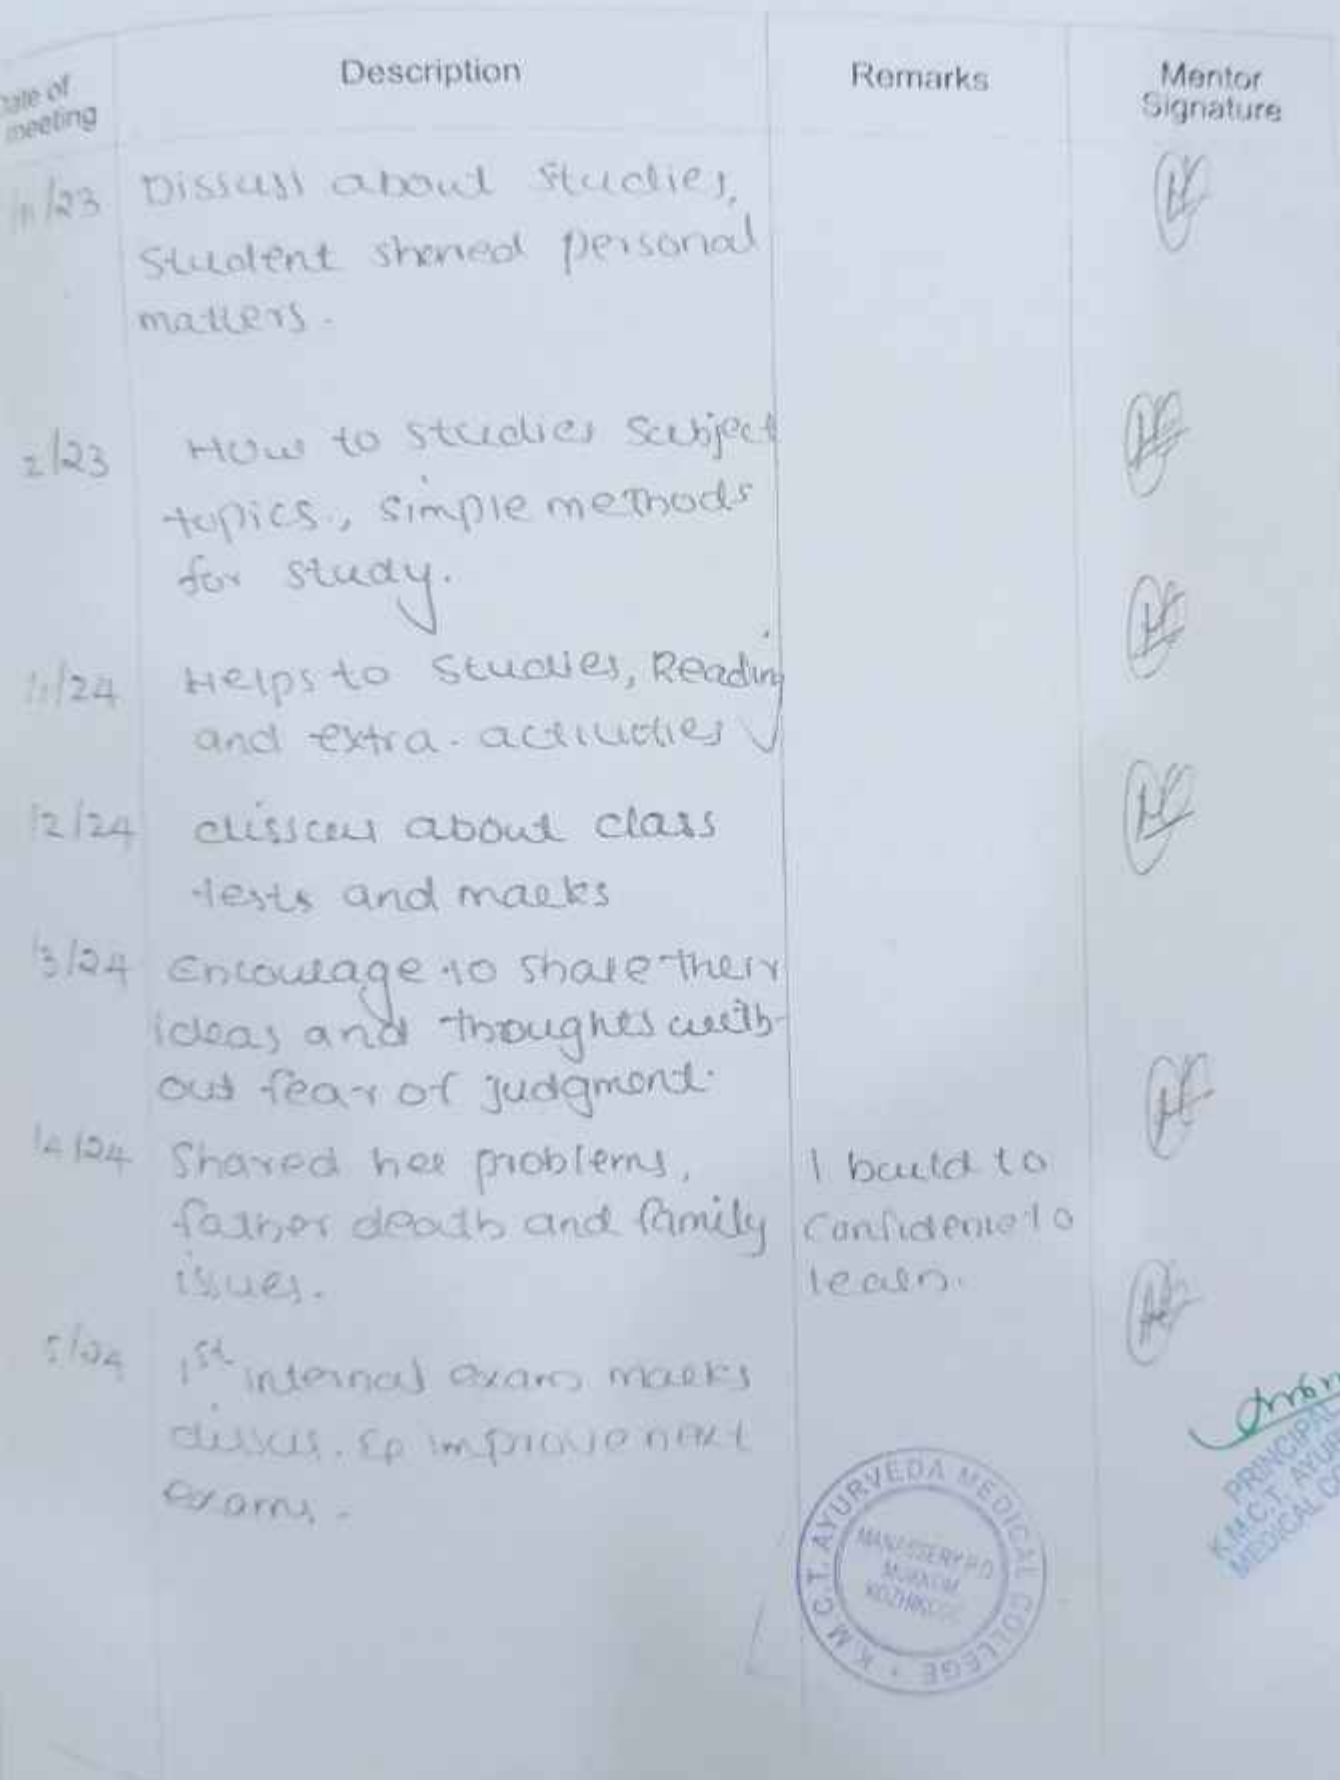 Date of meeting
Description
Remarks
Mentor Signature
/11/23 Dissuss about studies,
Student shered personal
matters.
2/23 How to studies Subject
topics., simple methods
for study.
/1/24 Helps to studies, Reading
and extra. activities
/2/24 disscus about class
tests and marks
/3/24 Encourage to share their
ideas and thoughts with-
out fear of judgment.
/4/24 Shared her problems, I build to
father death and family Confidence to
issues. learn.
5/24 1st internal exam marks
discus. improve next
exams.
K.M.C.T. AYURVEDA MEDICAL COLLEGE
MANASSERY P.O
MUKKOM
KOZHIKODE
PRINCIPAL
K.M.C.T. AYUR
MEDICAL CO